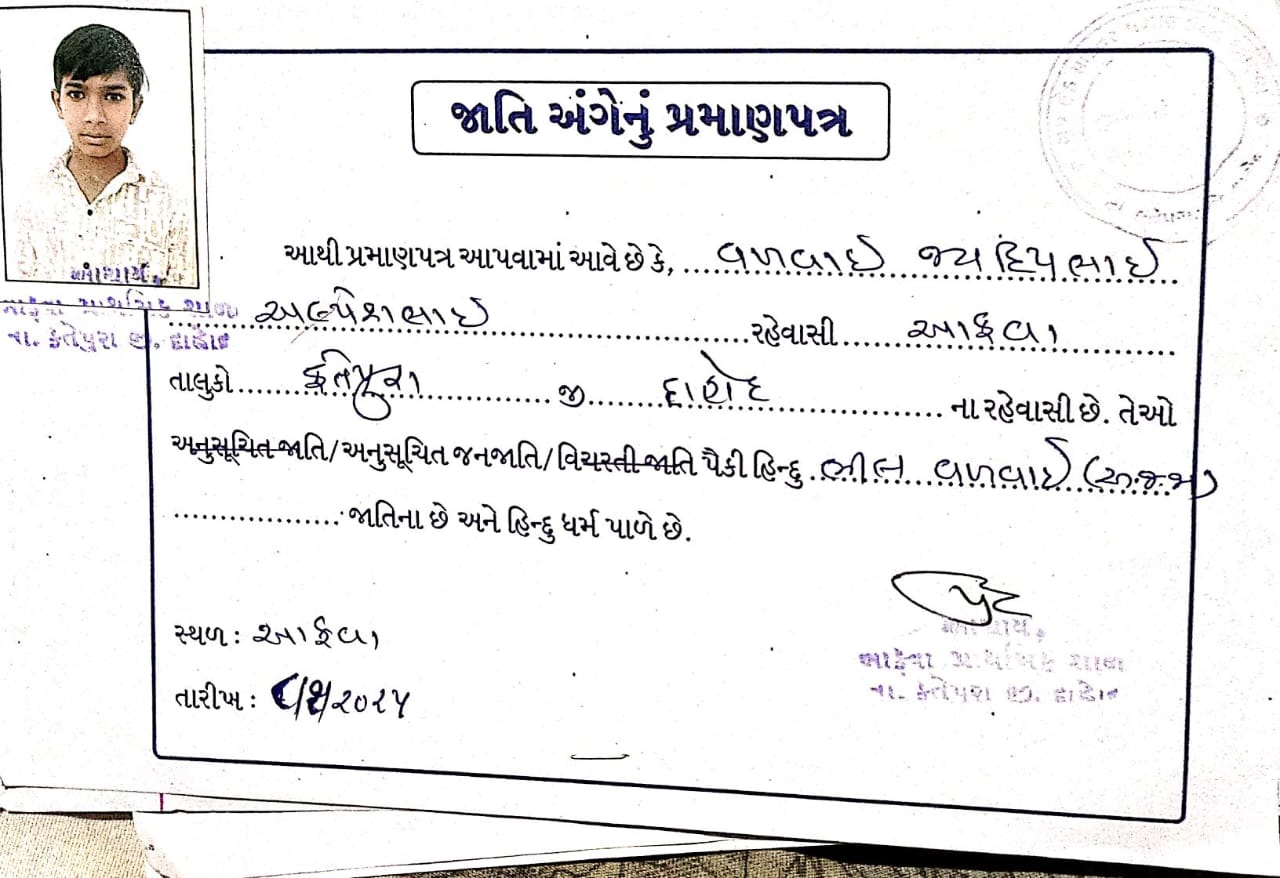 જાતિ અંગેનું પ્રમાણપત્ર
આથી પ્રમાણપત્ર આપવામાં આવે છે કે, વળવાઈ જયદિપભાઈ
અલ્પેશભાઈ રહેવાસી આફવા
તાલુકો ફતેપુરા જી. દાહોદ ના રહેવાસી છે. તેઓ
અનુસૂચિત જાતિ/અનુસૂચિત જનજાતિ/વિચરતી જાતિ પૈકી હિન્દુ ભીલ વળવાઈ (અ.જ.જા)
જાતિના છે અને હિન્દુ ધર્મ પાળે છે.
સ્થળ : આફવા
તારીખ : ૮/૧/૨૦૨૫
આચાર્ય,
આફવા પ્રાથમિક શાળા
તા. ફતેપુરા જી. દાહોદ
આચાર્ય,
આફવા પ્રાથમિક શાળા
તા. ફતેપુરા જી. દાહોદ